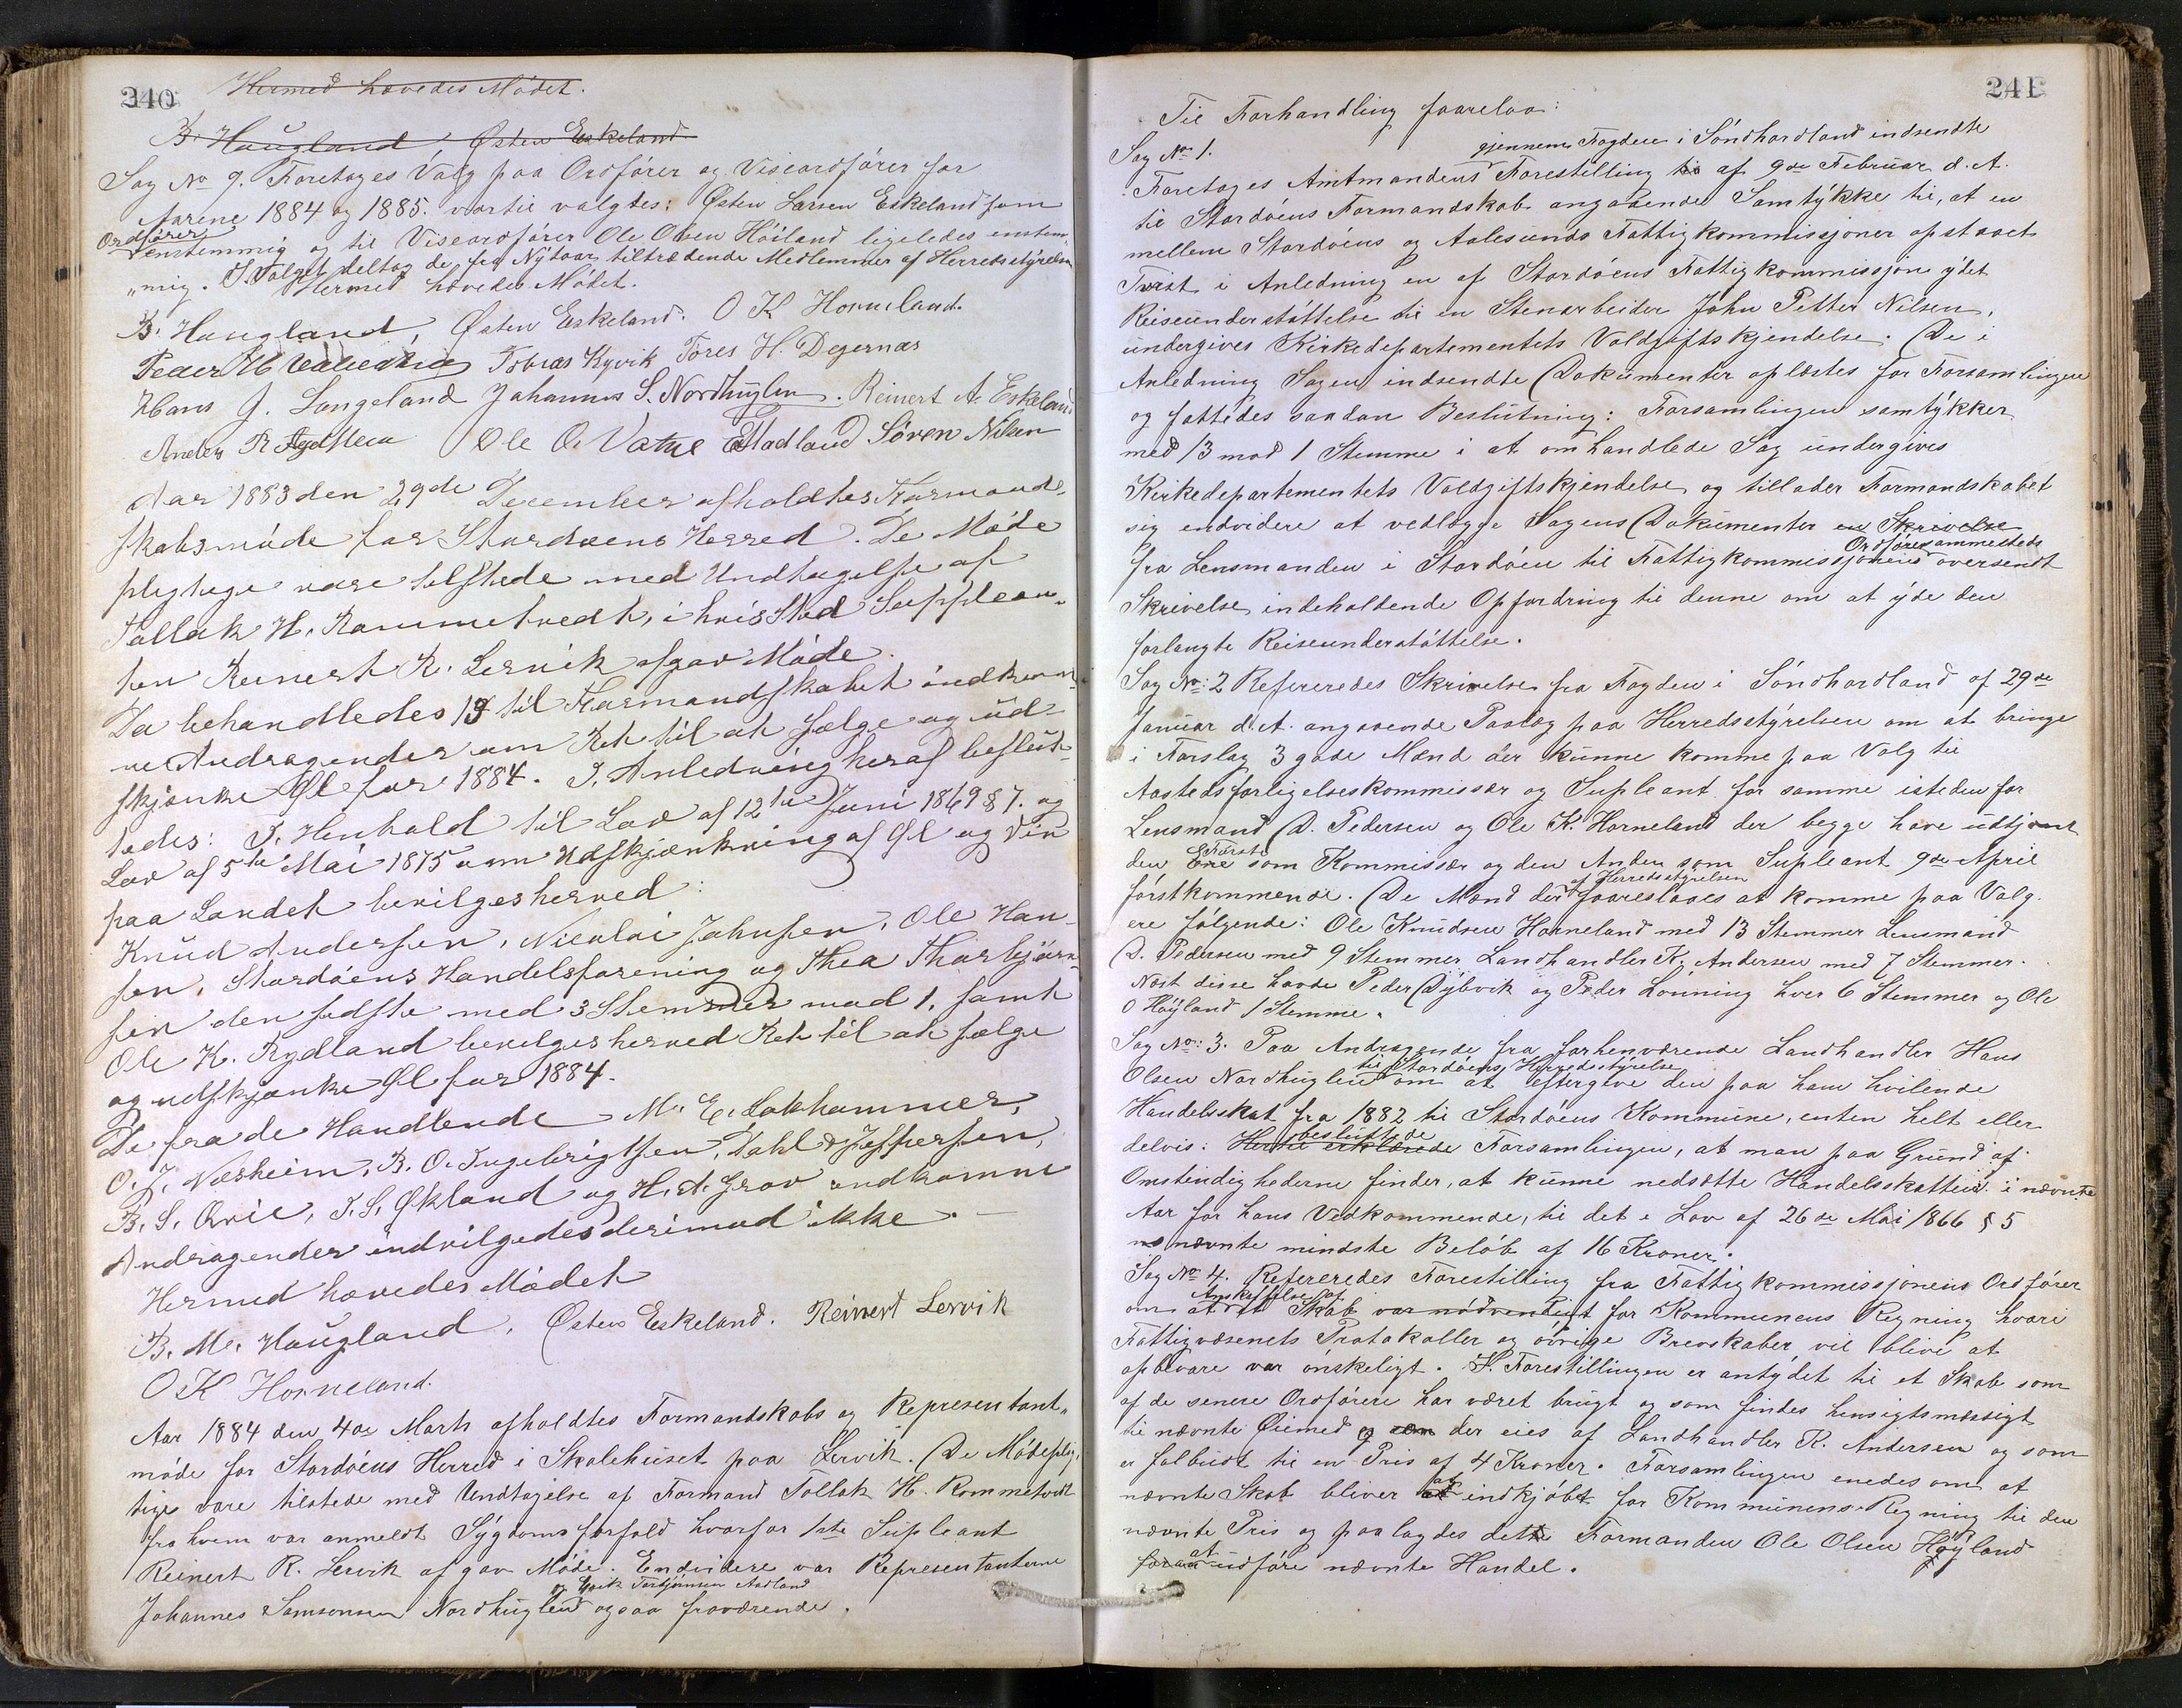 240
Hermed hævedes Mödet.
B. Haugland, Østen Eskeland
Sag No 9. Foretages Valg paa Ordförer og Viseordförer for
Aarene 1884 og 1885. vortil valgtes: Østen Larsen Eskeland som
Ordförer enstemmig og til Viseordförer Ole Olsen Höiland ligeledes enstem„
„mig. I Valget deltog de fra Nÿtaar tiltrædende Medlemmer af Herredsstÿrelsen
Hermed hævedes Mödet.
B. Haugland, Østen Eskeland. O K Horneland.
Peder Tobias Kyvik Tores H. Degernæs
Hans J. Langeland Johannes S. Nordhuglen. Reinert A. Eskeland
Anders R Ole O. Vatne Aadland Sören Nilsen
Aar 1883 den 29de December afholdtes Formand-
skabsmöde for Stordöens Herred. De Möde
pligtige vare tilstede med Undtagelse af
Tollak H. Rommetvedt, i hvis Sted Supplean-
ten Reinert R. Lervik afgav Möde.
Da behandledes 13 til Formandskabet indkom-
ne Andragender om Ret til at sælge og ud-
skjænke Øl for 1884. I Anledning heraf beslut-
tedes: I Henhold til Lov af 12te Juni 1869 § 7. og
Lov af 5te Mai 1875 om Udskjænkning af Øl og Vin
paa Landet bevilges herved:
Knud Andersen, Nicolai Johnsen, Ole Han-
sen, Stordöens Handelsforening og Thea Thorbjörn-
sen den sidste med 3 Stemmer mod 1, samt
Ole K. Rydland bevilges herved Ret til at sælge
og udskjænke Øl for 1884.
De fra de Handlende M. E. Lokhammer,
O. J. Næsheim, B. O. Ingebrigtsen, Dahl & Jespersen,
B. S. Qvie, J. S. Økland og H. A. Grov indkomne
Andragender indvilgedes derimod ikke. —
Hermed hævedes Mödet
B. M. Haugland, Østen Eskeland. Reinert Lervik
O K Horneland.
Aar 1884 den 4de Marts afholdtes Formandskabs og Representant„
möde for Stordöens Herred i Skolehuset paa Lervik. De Mödeplig„
tige vare tilstede med Undtagelse af Formand Tollak H. Rommetvedt
fra hvem var anmeldt Sÿgdomsforfald hvorfor 1ste Supleant
Reinert R. Lervik afgav Möde. Endvidere var Representanterne
Johannes Samsonsen Nordhuglen og Erik Torbjörnsen Aadland ogsaa fraværende.
241
Til Forhandling forelaa:
Sag No 1.
Foretages Amtmandens gjennem Fogden i Söndhordland indsendte Forestilling til af 9de Februar d. A.
til Stordöens Formandskab angaaende Samtÿkke til, at en
mellem Stordöens og Aalesunds Fattigkommissjoner opstaaet
Tvist i Anledning en af Stordöens Fattigkommissjon ÿdet
Reiseunderstöttelse til en Stenarbeider John Petter Nilsen,
undergives Kirkedepartementets Voldgiftskjendelse. De i
Anledning Sagen indsendte Dokumenter oplæstes for Forsamlingen
og fattedes saadan Beslutning: Forsamlingen samtÿkker
med 13 mod 1 Stemme i at omhandlede Sag undergives
Kirkedepartementets Voldgiftskjendelse og tillader Formandskabet
sig endvidere at vedlægge Sagens Dokumenter en Skrivelse
fra Lensmanden i Stordöen til Fattigkommissjonens Ordförer sammesteds oversendt
Skrivelse indeholdende Opfordring til denne om at ÿde den
forlangte Reiseunderstöttelse.
Sag No: 2 Refereredes Skrivelse fra Fogden i Söndhordland af 29de
Januar d. A. angaaende Paalæg paa Herredsstÿrelsen om at bringe
i Forslag 3 gode Mænd der kunne komme paa Valg til
Aastedsforligelseskommissær og Supleant for samme istedenfor
Lensmand D. Pedersen og Ole K. Horneland der begge have udtjent
den Ene Förste som Kommissær og den Anden som Supleant 9de April
förstkommende. De Mænd der af Herredsstÿrelsen foreslaaes at komme paa Valg
ere fölgende: Ole Knudsen Horneland med 13 Stemmer Lensmand
D. Pedersen med 9 Stemmer Landhandler K. Andersen med 7 Stemmer.
Næst disse havde Peder Dÿbvik og Peder Lönning hver 6 Stemmer og Ole
O Höÿland 1 Stemme.
Sag No: 3. Paa Andragende fra forhenværende Landhandler Hans
Olsen Nordhuglen til Stordöens Herredsstÿrelse om at eftergive den paa ham hvilende
Handelsskat fra 1882 til Stordöens Kommune, enten helt eller
delvis: Hertil erklærede besluttede Forsamlingen, at man paa Grund af
Omstendighederne finder, at kunne nedsætte Handelsskatten i nævnte
Aar for hans Vedkommende, til det i Lov af 26de Mai 1866 § 5
nævnte mindste Belöb af 16 Kroner.
Sag No 4. Refereredes Forestilling fra Fattigkommissjonens Ordförer
om Anskaffelse af at et Skab var nödvendigt for Kommunens Regning hvori
Fattigvæsenets Protokoller og övrige Brevskaber vil blive at
opbevare var önskeligt. I Forestillingen er antÿdet til et Skab som
af de senere Ordförere har været brugt og som findes hensigtsmæssigt
til nævnte Øiemed og som der eies af Landhandler K. Andersen og som
er falbudt til en Pris af 4 Kroner. Forsamlingen enedes om at
nævnte Skab bliver at indkjöbt for Kommunens Regning til den
nævnte Pris og paalagdes dette Formanden Ole Olsen Höÿland
at udföre nævnte Handel.